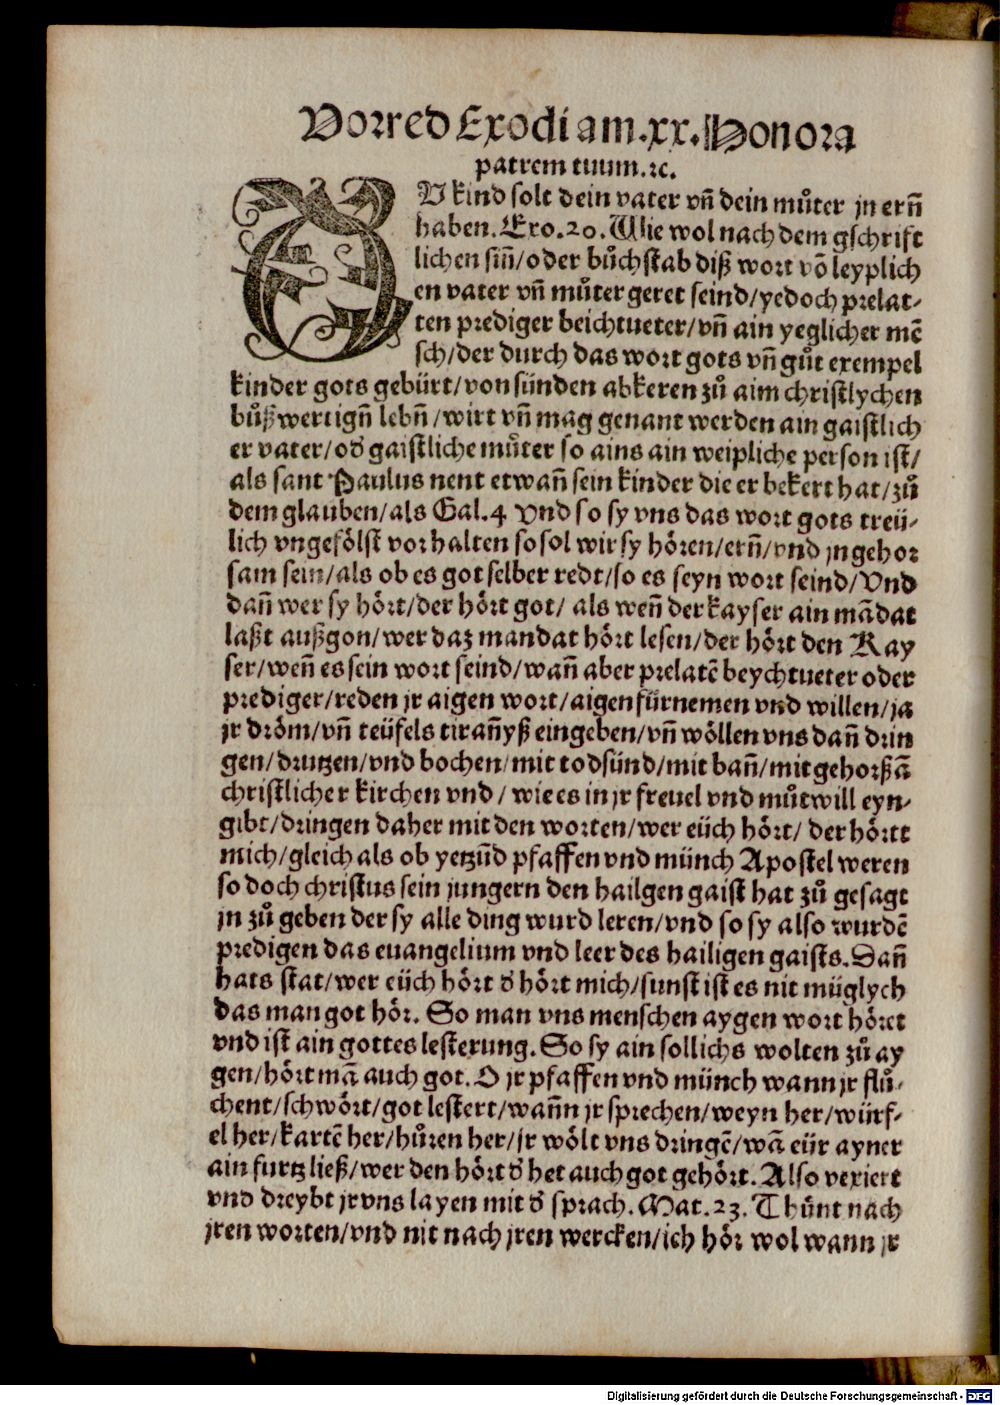 Vorred Exodi am.xx. Honora
patrem tuum.ꝛc.
DV kind solt dein vater vñ dein můter jn erñ
haben. Exo.20. Wie wol nach dem gschrift
lichen siñ/oder bůchstab diß wort võ leyplich
en vater vñ můter geret seind/yedoch prelat-
ten prediger beichtueter/vñ ain yeglicher mẽ
sch/der durch das wort gots vñ gůt exempel
kinder gots gebürt/von sünden abkeren zů aim christlychen
bůßwertigñ lebñ/wirt vñ mag genant werden ain gaistlich
er vater/oď gaistliche můter so ains ain weipliche person ist/
als sant Paulus nent etwañ sein kinder die er bekert hat/zů
dem glauben/als Gal.4 Vnd so sy vns das wort gots treü-
lich vngefölst vorhalten so sol wir sy hören/erñ/vnd jn gehor
sam sein/als ob es got selber redt/so es seyn wort seind/Vnd
dañ wer sy hört/der hört got/ als weñ der kayser ain mãdat
laßt außgon/wer daz mandat hört lesen/der hört den Kay
ser/weñ es sein wort seind/wañ aber prelatẽ beychtueter oder
prediger/reden jr aigen wort/aigen fürnemen vnd willen/ja
jr dröm/vñ teüfels tirañyß eingeben/vñ wöllen vns dañ drin
gen/drutzen/vnd bochen/mit todsünd/mit bañ/mit gehorßã
christlicher kirchen vnd/ wie es in jr freuel vnd můtwill eyn-
gibt/dringen daher mit den worten/wer eüch hört/ der hörtt
mich/gleich als ob yetzũd pfaffen vnd münch Apostel weren
so doch christus sein jungern den hailgen gaist hat zů gesagt
jn zů geben der sy alle ding wurd leren/vnd so sy also wurdẽ
predigen das euangelium vnd leer des hailigen gaists. Dañ
hats stat/wer eüch hört ď hört mich/sunst ist es nit müglych
das man got hör. So man vns menschen aygen wort höret
vnd ist ain gottes lesterung. So sy ain sollichs wolten zů ay
gen/hört mã auch got. O jr pfaffen vnd münch wann jr flů-
chent/schwört/got lestert/wañn jr sprechen/weyn her/würf-
el her/kartẽ her/hůren her/jr wölt vns dringẽ/wã eür ayner
ain furtz ließ/wer den hört ď het auch got gehört. Also vexiert
vnd dreybt jr vns layen mit ď sprach. Mat.23. Thůnt nach
jren worten/vnd nit nach jren wercken/ich hör wol wann jr
Digitalisierung gefördert durch die Deutsche Forschungsgemeinschaft - DFG